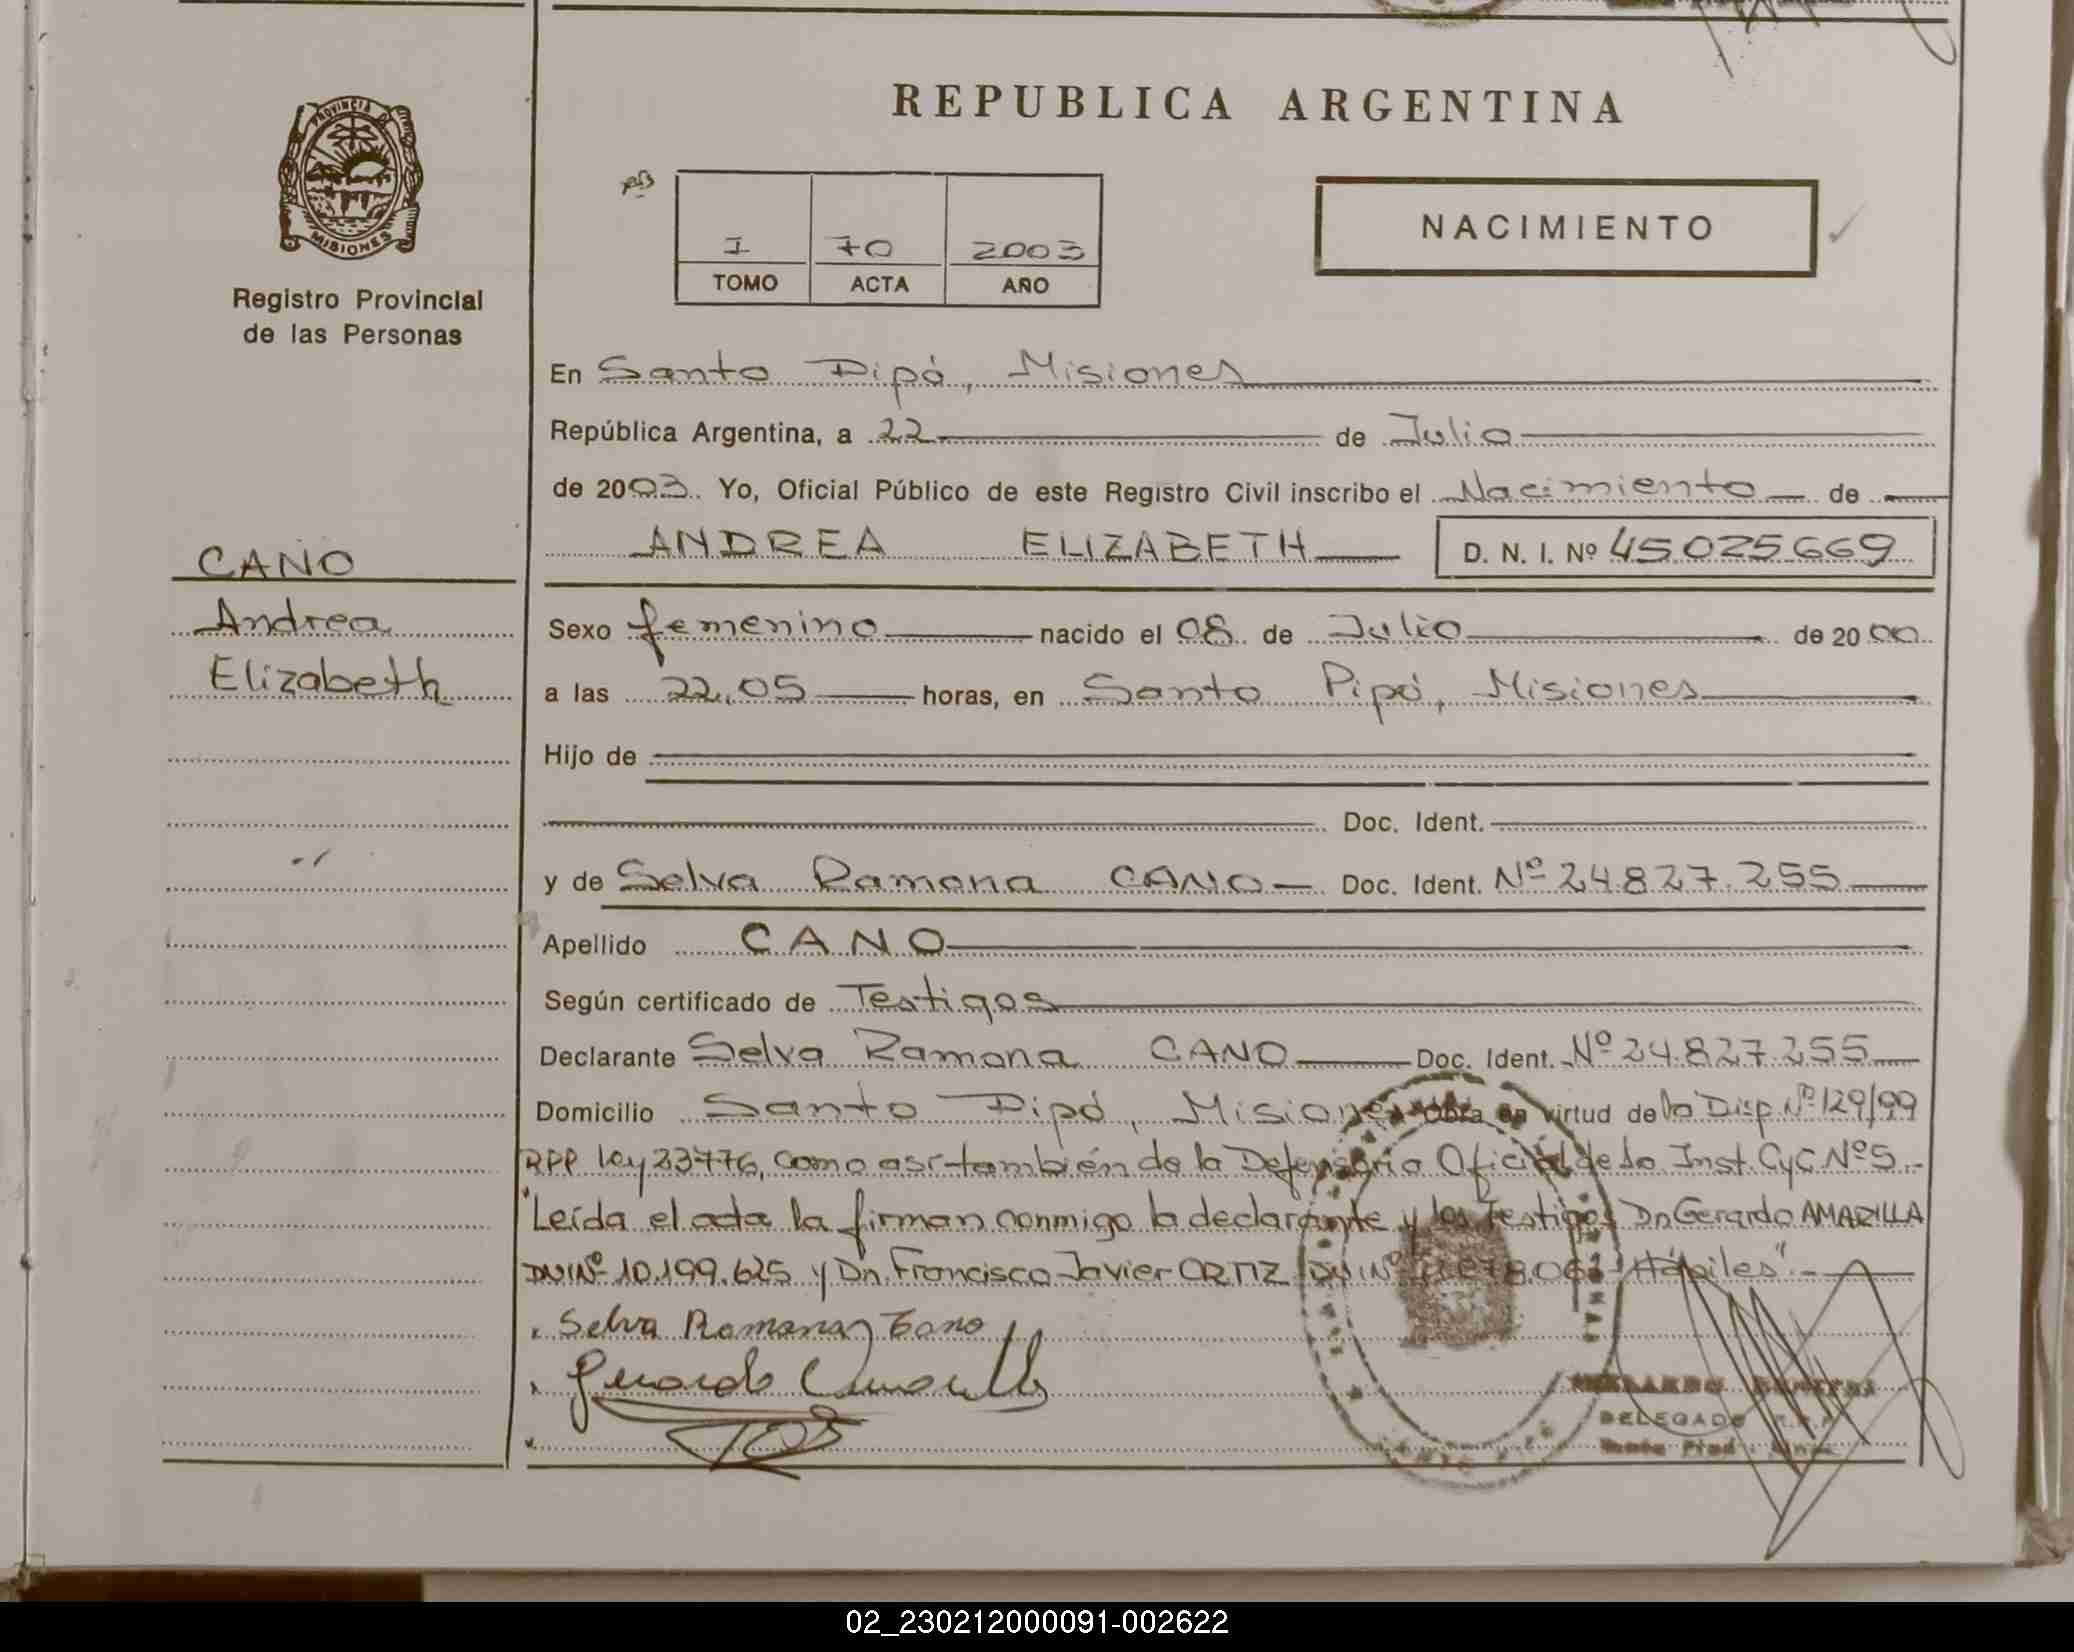 REPUBLICA ARGENTINA
PROVINCIA DE MISIONES
Registro Provincial
de las Personas
I 70 2003
TOMO ACTA AÑO
NACIMIENTO
En Santo Pipó, Misiones
República Argentina, a 22 de Julio
de 2003. Yo, Oficial Público de este Registro Civil inscribo el Nacimiento de
ANDREA ELIZABETH D. N. I. Nº 45.025.669
CANO
Andrea
Elizabeth
Sexo femenino nacido el 08 de Julio de 2000
a las 22,05 horas, en Santo Pipó, Misiones
Hijo de
Doc. Ident.
y de Selva Ramona CANO Doc. Ident. Nº 24.827.255
Apellido CANO
Según certificado de Testigos
Declarante Selva Ramona CANO Doc. Ident. Nº 24.827.255
Domicilio Santo Pipó, Misiones Obra en virtud de la Disp. Nº 129/99
RPP ley 23776, como así también de la Defensoría Oficial de la Inst. CyC Nº 5.-
"Leída el acta la firman conmigo la declarante y los testigos Dn Gerardo AMARILLA
DNI Nº 10.199.625 y Dn. Francisco Javier ORTIZ DNI Nº Hábiles".-
Selva Ramona Cano
Gerardo Amarilla
DELEGADO R.P.P.
02_230212000091-002622